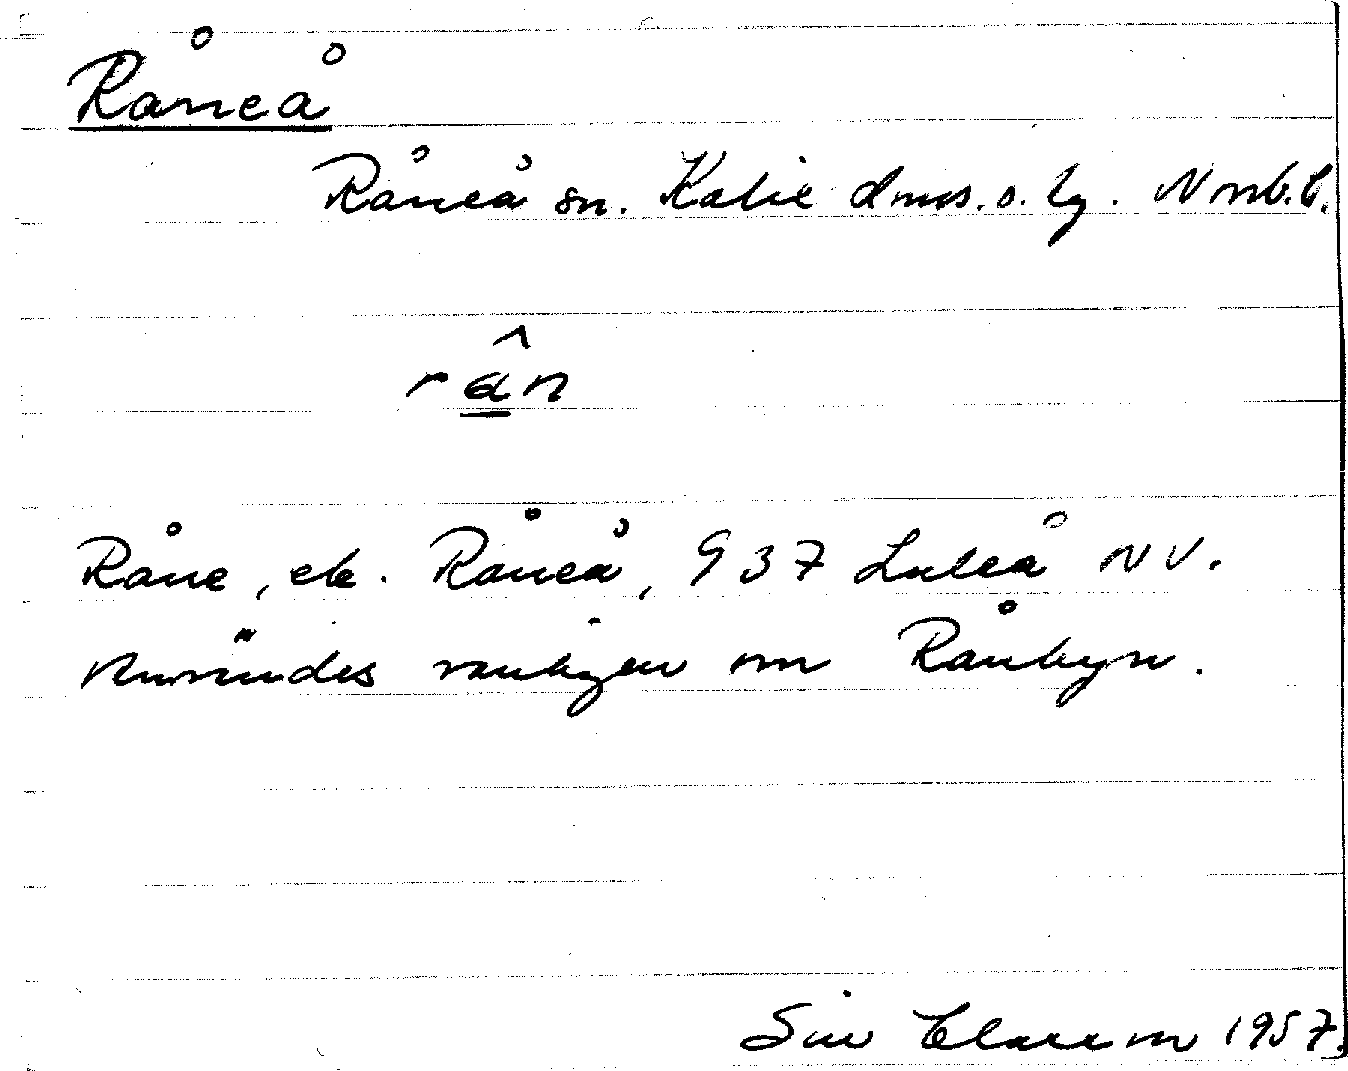 Råneå
Råneå sn. Kalix dms. o. lg. Norrb. l.
rân
Råne, ek. Råneå, 937 Luleå NV.
Användes vanligen om Rånbyn.
Siw 1957.